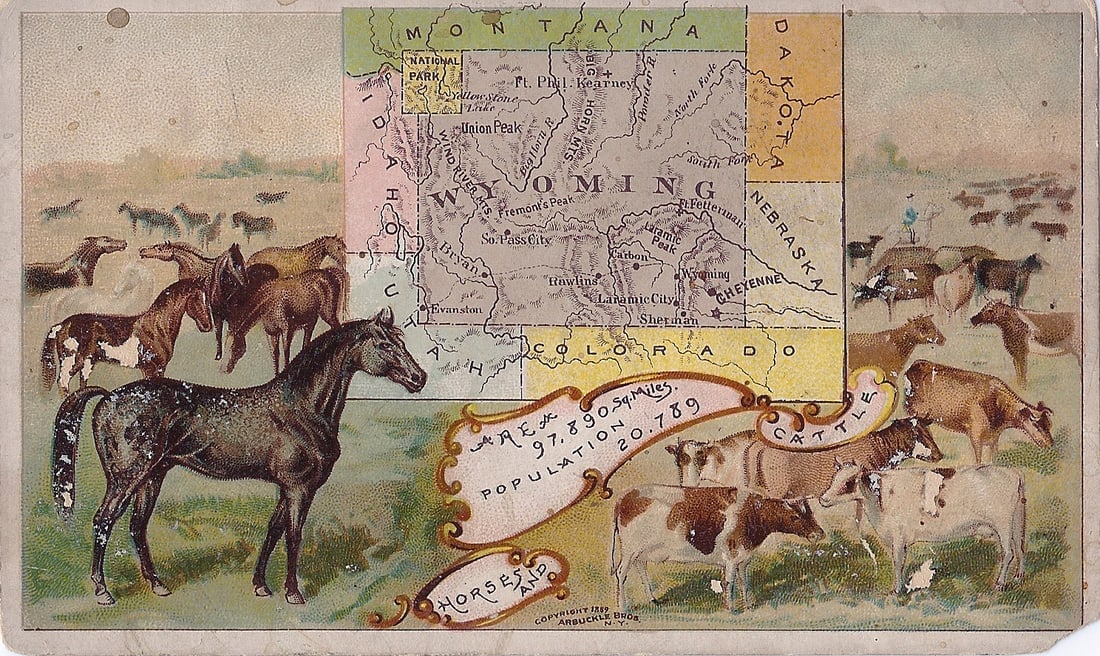 MONTANA
DAKOTA
IDAHO
NATIONAL
PARK
Yellow Stone
Lake
Ft. Phil. Kearney
BIG HORN MTS
Powder R
North Fork
Union Peak
Big Horn R
WIND RIVER MTS.
South Fork
WYOMING
Fremont's Peak
Ft. Fetterman
NEBRASKA
So. Pass City
Laramie
Peak
Bryan
Carbon
Rawlins
Wyoming
CHEYENNE
Laramie City
Evanston
Sherman
UTAH
COLORADO
AREA
97,890 Sq. Miles.
POPULATION
20.789
CATTLE
HORSES
AND
COPYRIGHT 1889
ARBUCKLE BROS.
N.Y.